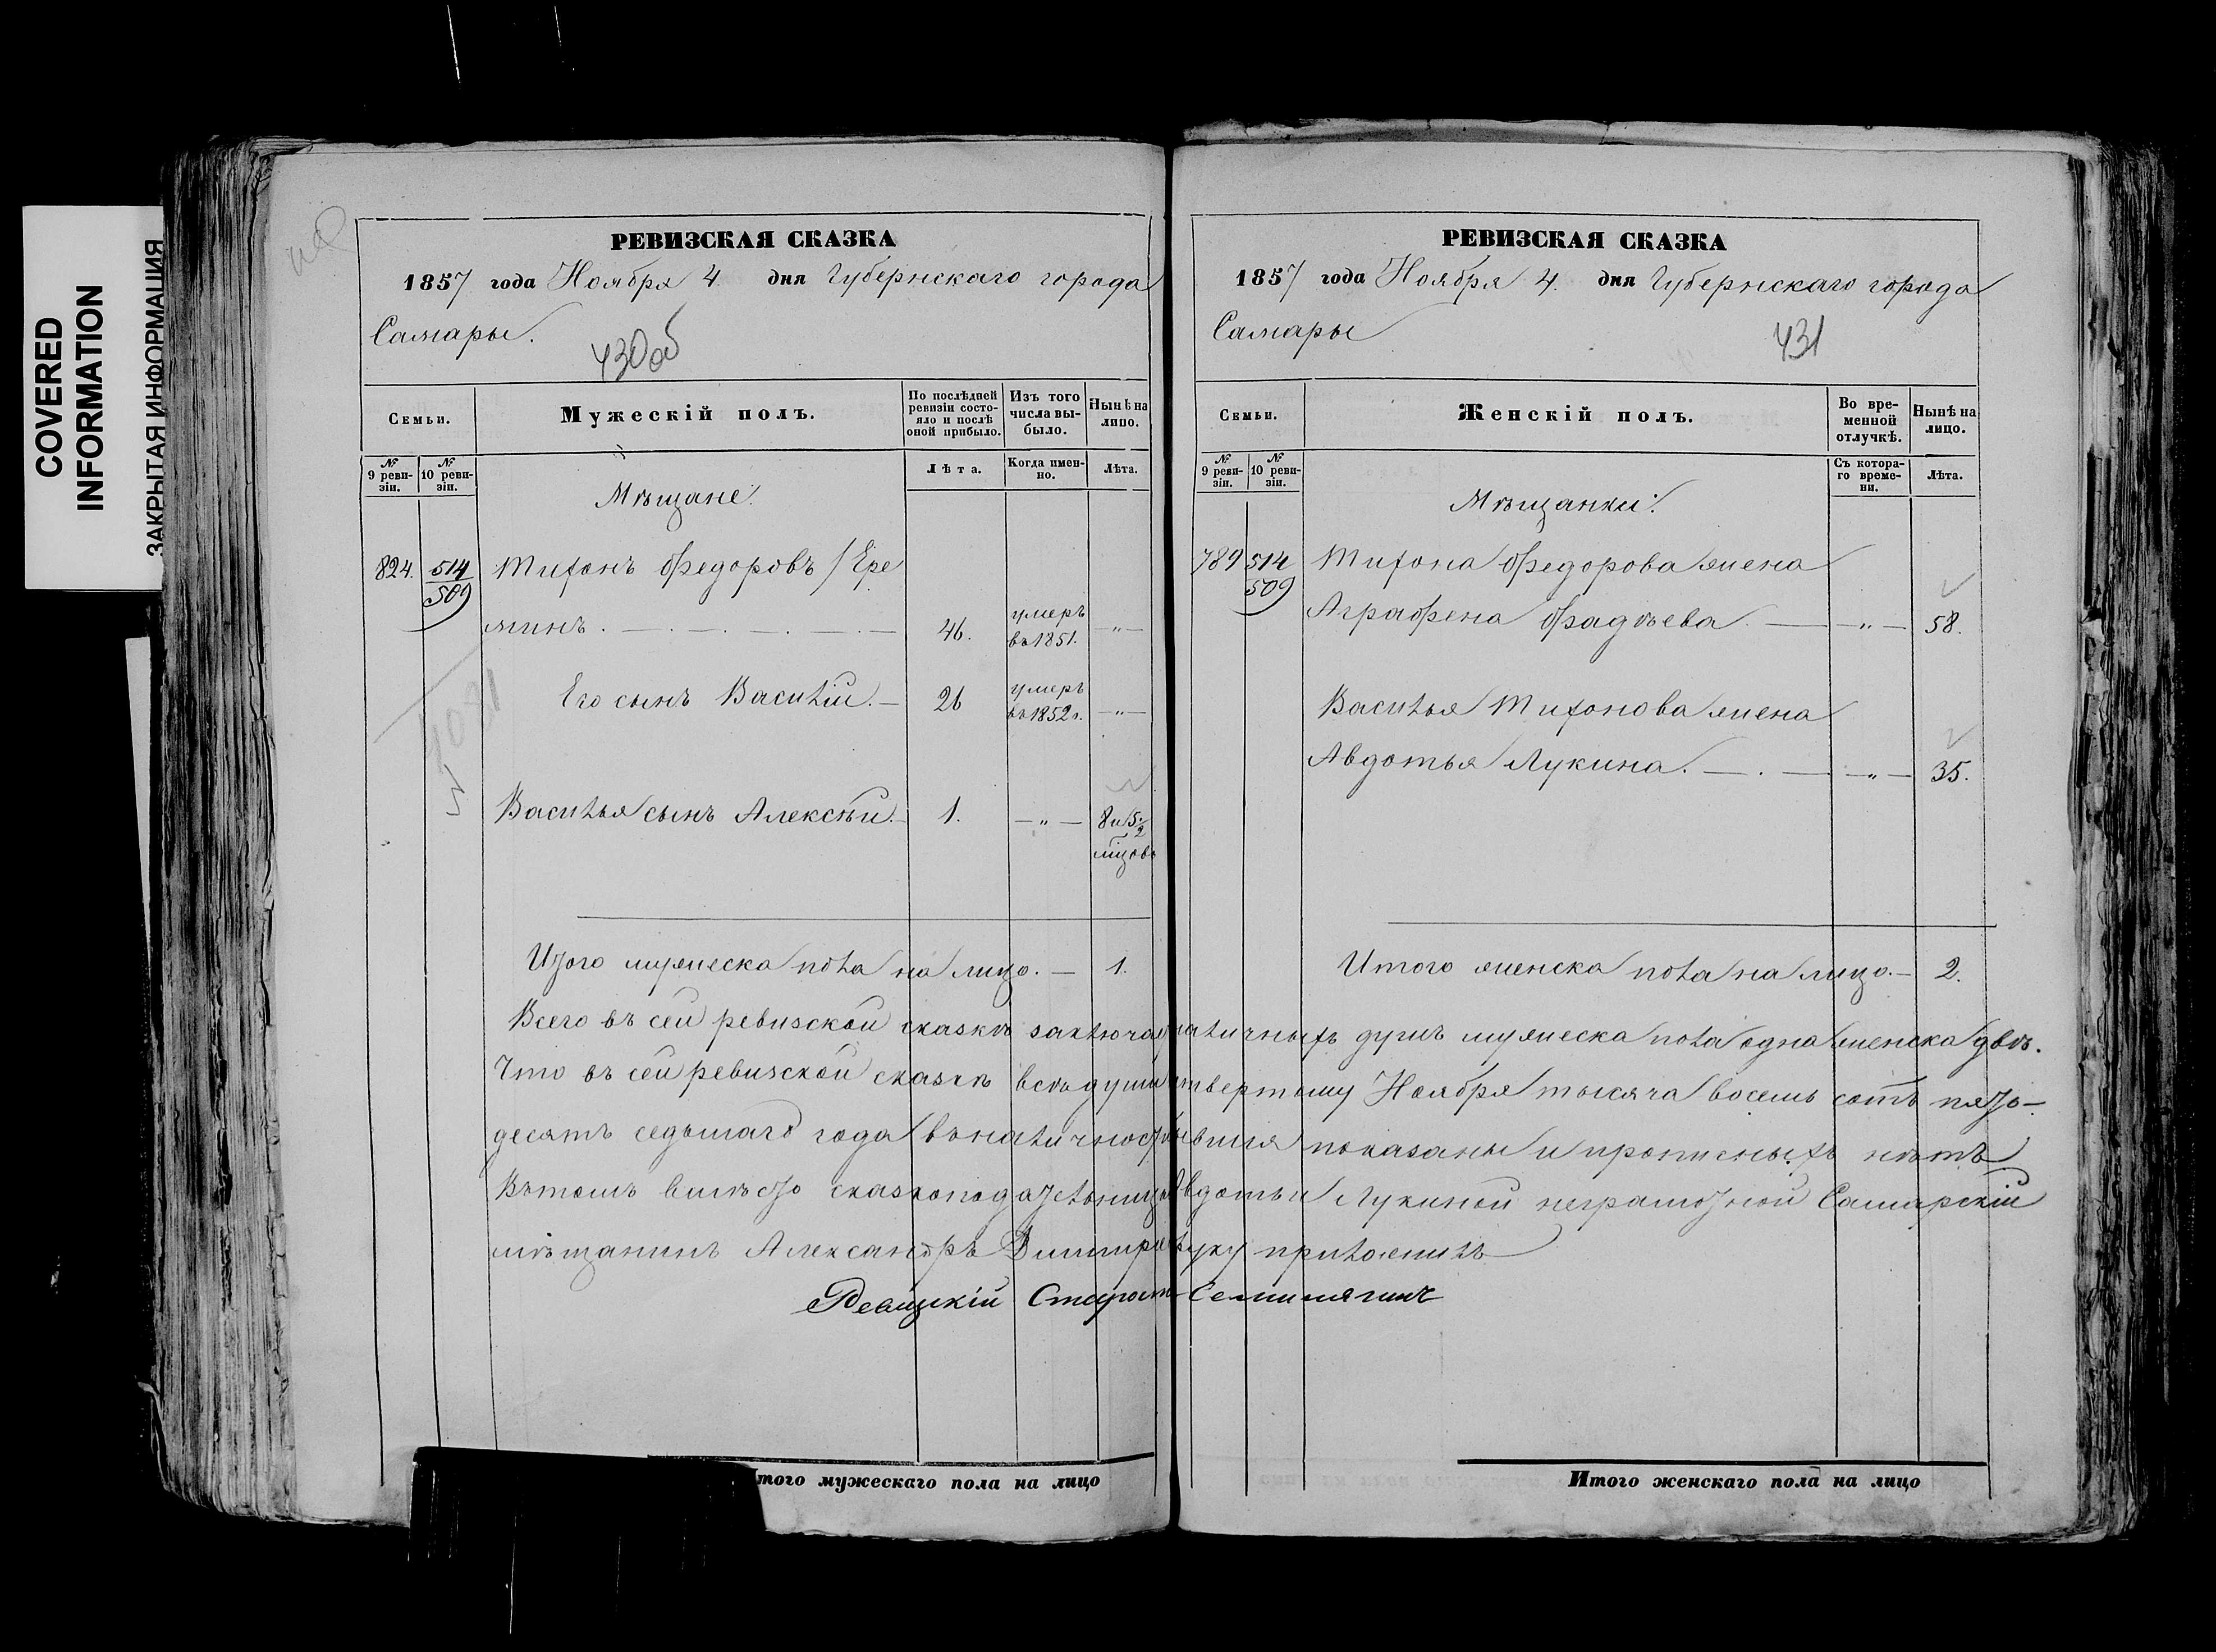 COVERED
INFORMATION
ЗАКРЫТАЯ ИНФОРМАЦИЯ
РЕВИЗСКАЯ СКАЗКА
1857 года Ноября 4. дня Губернскаго города
Самары.
430об
Семьи.
Мужескій полъ.
По послѣдней ревизіи состояло и послѣ оной прибыло.
Изъ того числа выбыло.
Нынѣ на лицо.
№ 9 ревизіи.
№ 10 ревизіи.
Лѣта.
Когда именно.
Лѣта.
Мѣщане:
824. 514 Тихонъ Федоровъ / Ере
509
минъ. 46. умеръ въ 1851. — „ —
Его сынъ Василій. — 26 умеръ въ 1852 г. — „ —
Василья сынъ Алексѣй. 1. — „ — 8 и 5/2
мцовъ
Итого мужеска пола на лицо. — 1.
РЕВИЗСКАЯ СКАЗКА
1857 года Ноября 4. дня Губернскаго города
Самары
431
Семьи.
Женскій полъ.
Во временной отлучкѣ.
Нынѣ на лицо.
№ 9 ревизіи.
№ 10 ревизіи.
Съ котораго времени.
Лѣта.
Мѣщанки:
789 514 Тихона Федорова жена
509
Аграфена Фадѣева. — „ — 58.
Василья Тихонова жена
Авдотья Лукина. — „ — 35.
Итого женска пола на лицо. — 2.
Всего въ сей ревизской сказкѣ заключая наличныхъ душъ мужеска пола одна женска двѣ.
Что въ сей ревизской сказкѣ всѣ души четвертому Ноября тысяча восемь сотъ пять-
десятъ седьмаго года въ наличности бывшія показаны и прописныхъ нѣтъ
Въ томъ вмѣсто сказкоподательницы Авдотьи Лукиной неграмотной Самарскій
мѣщанинъ Александръ руку приложилъ
Ревизскій Староста
Итого мужескаго пола на лицо
Итого женскаго пола на лицо